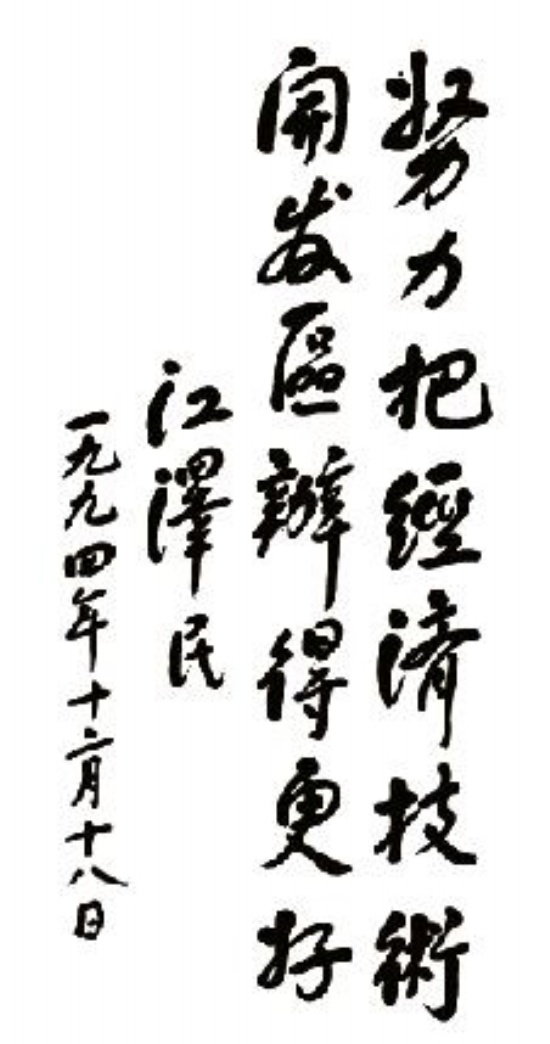 努力把經濟技術
開发區辦得更好
江澤民
一九九四年十二月十八日